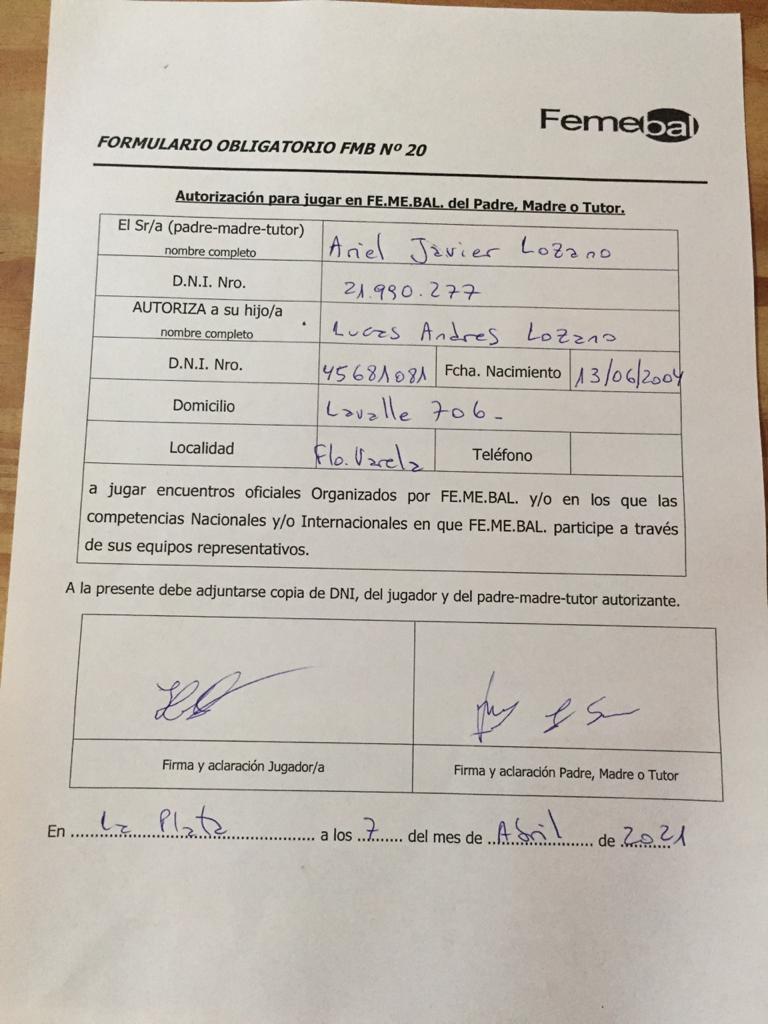 Femebal
FORMULARIO OBLIGATORIO FMB Nº 20
Autorización para jugar en FE.ME.BAL. del Padre, Madre o Tutor.
El Sr/a (padre-madre-tutor)
nombre completo
Ariel Javier Lozano
D.N.I. Nro.
21.990.277
AUTORIZA a su hijo/a
nombre completo
Lucas Andres Lozano
D.N.I. Nro.
45681081
Fcha. Nacimiento
13/06/2004
Domicilio
Lavalle 706-
Localidad
Flo. Varela
Teléfono
a jugar encuentros oficiales Organizados por FE.ME.BAL. y/o en los que las
competencias Nacionales y/o Internacionales en que FE.ME.BAL. participe a través
de sus equipos representativos.
A la presente debe adjuntarse copia de DNI, del jugador y del padre-madre-tutor autorizante.
Firma y aclaración Jugador/a
Firma y aclaración Padre, Madre o Tutor
En La Plata a los 7 del mes de Abril de 2021